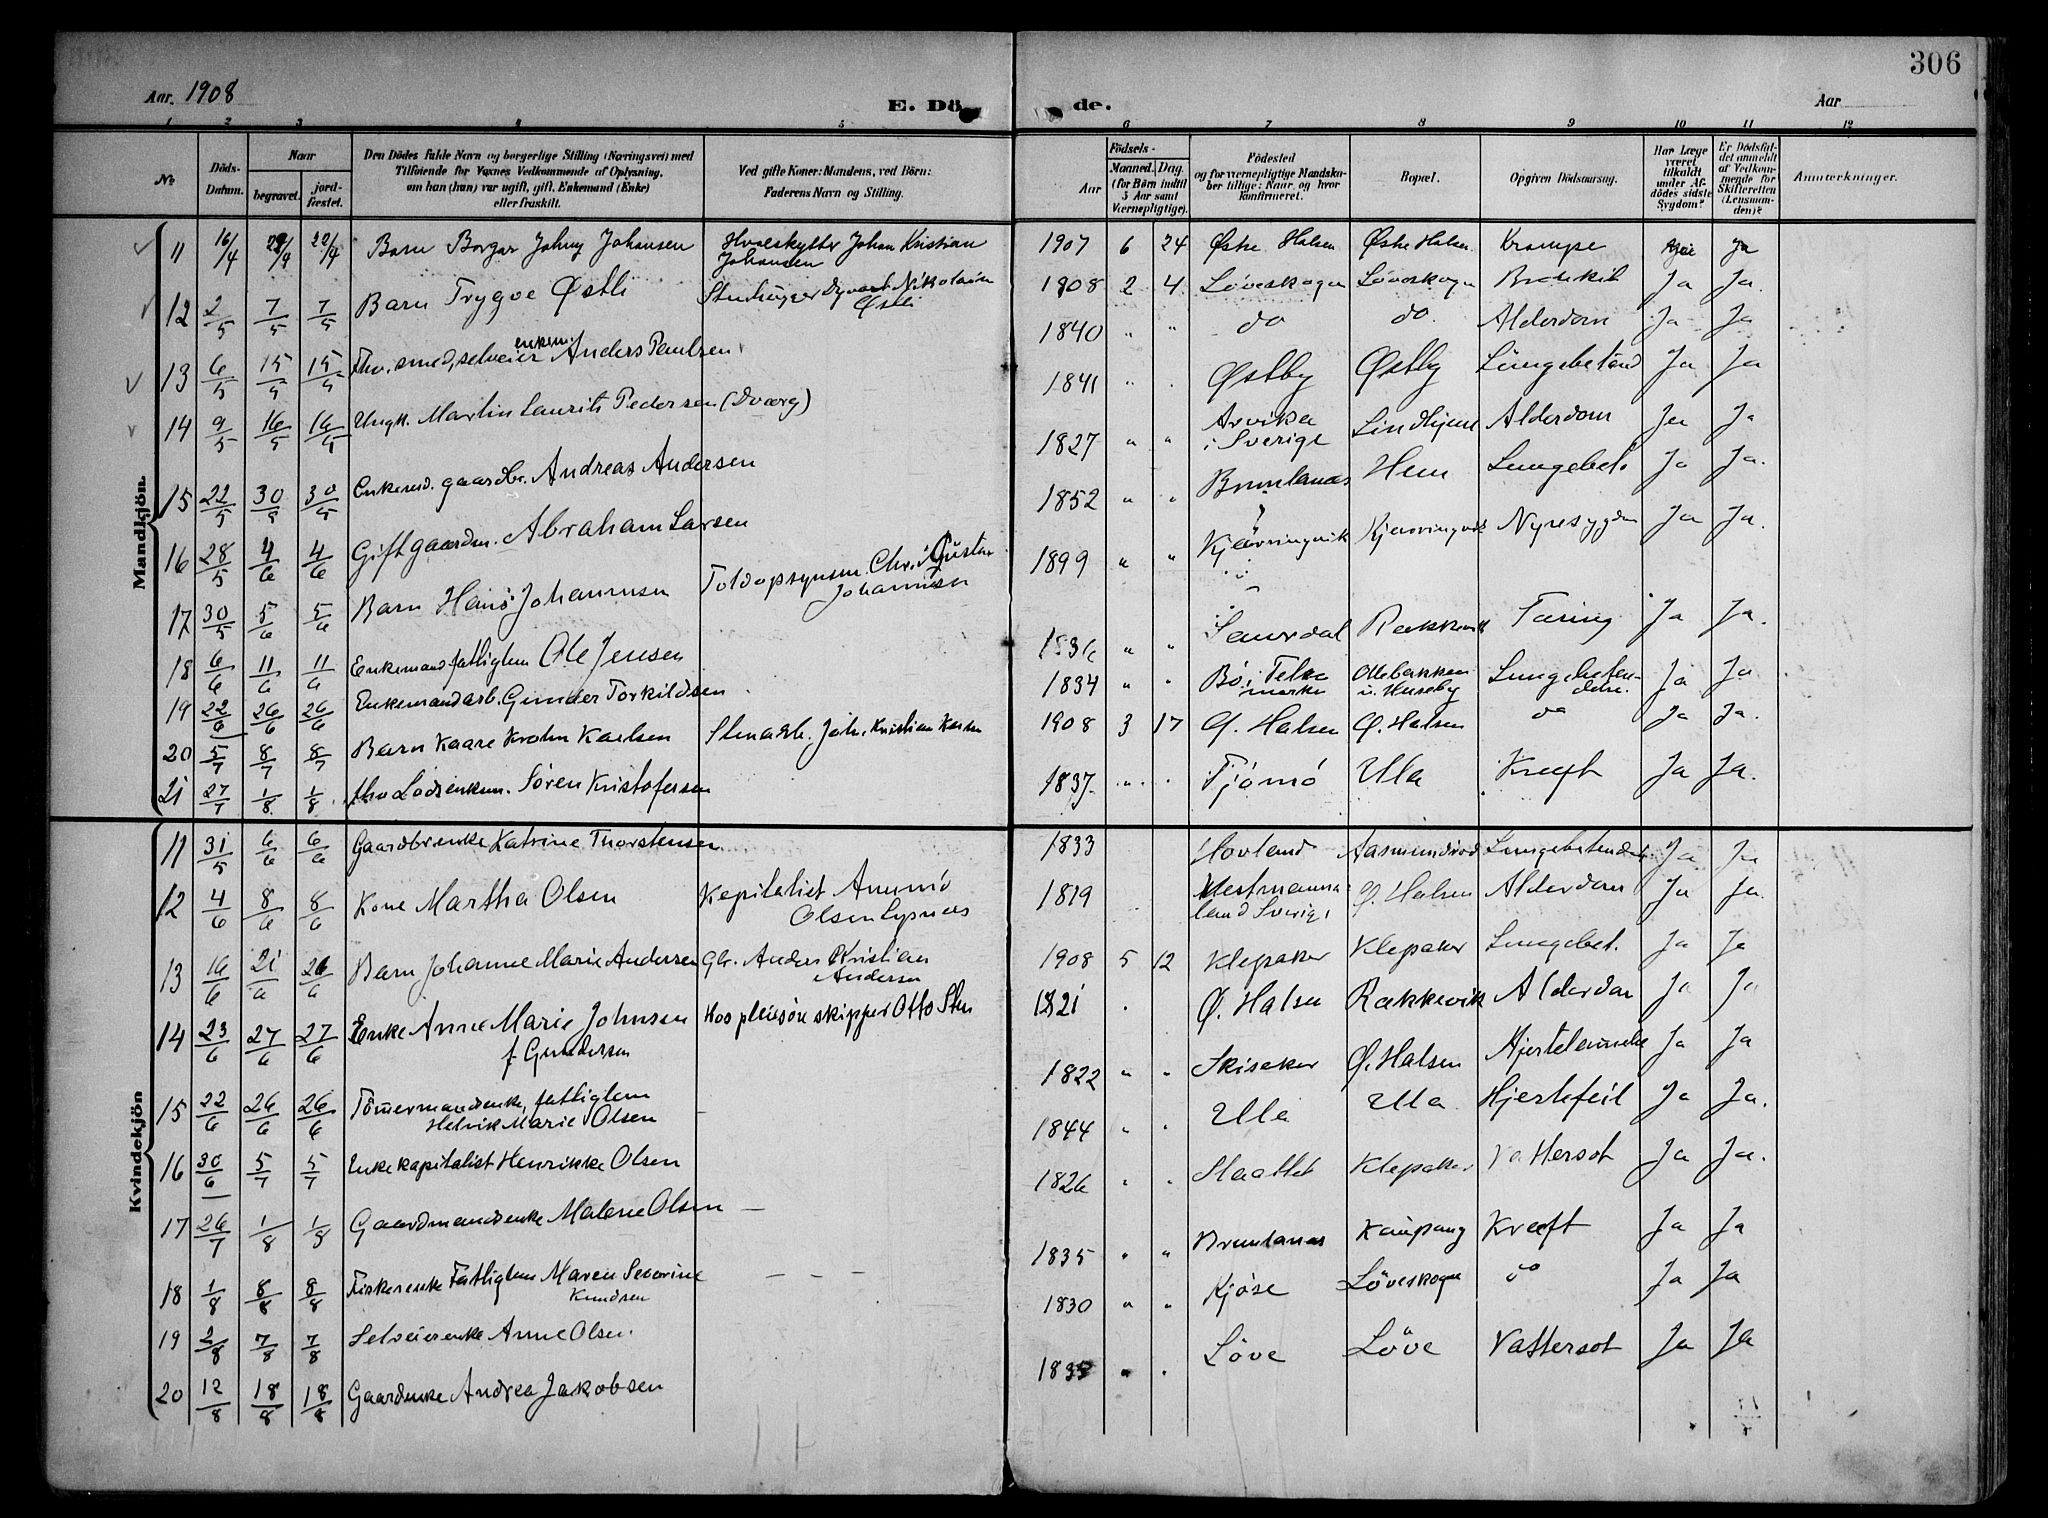 306
Aar. 1908
E. Dö de.
Aar
1 2 3 4 5 6 7 8 9 10 11 12
No
Döds-Datum.
Naar
begravet.
jord-fæstet.
Den Dödes fulde Navn og borgerlige Stilling (Næringsvei) med
Tilföiende for Voxnes Vedkommende af Oplysning,
om han (hun) var ugift, gift, Enkemand (Enke)
eller fraskilt.
Ved gifte Koner: Mandens, ved Börn:
Faderens Navn og Stilling.
Födsels-
Aar
Maaned. Dag.
(for Börn indtil
5 Aar samt
Værnepligtige).
Födested
og for værnepligtige Mandska-
ber tillige: Naar og hvor
konfirmeret.
Bopæl.
Opgiven Dödsaarsag.
Har Læge
været
tilkaldt
under Af-
dödes sidste
Sygdom?
Er Dödsfal-
det anmeldt
af Vedkom-
mende for
Skifteretten
(Lensman-
den)?
Anmærkninger.
Mandkjön.
11 16/4 22/4 22/4 Barn Borgar Johny Johansen Hvalskytter Johan Kristian Johansen 1907 6 24 Østre Halsen Østre Halsen Krampe Ja
12 2/5 7/5 7/5 Barn Trygve Østli Nikolaisen Østli 1908 2 4 Løveskogen Løveskogen Bronkit Ja Ja.
13 6/5 15/5 15/5 Fhv. smed, selveier enkem. Anders Paulsen 1840 " " do do. Alderdom Ja Ja
14 9/5 16/5 16/5 Ungk. Martin Laurits Pedersen (Dværg) 1841 " . Østby Østby Lungebetænd Ja Ja
15 22/5 30/5 30/5 Enkemd. gaardbr. Andreas Andersen 1827 " " Arvika i Sverige Lindhjem Alderdom Ja Ja
16 28/5 4/6 4/6 Gift gaardm. Abraham Larsen 1852 " " Brunlanæs Hem Lungebet. Ja Ja.
17 30/5 5/6 5/6 Barn Hans Johannesen Toldopsynsm. Chr. Gustav Johannesen 1899 " " Kjærringvik Kjærringvik Nyresygdom Ja Ja.
18 6/6 11/6 11/6 Enkemand fattiglem Ole Jensen 1836 " " Saurdal Rækkevik Tæring Ja Ja.
19 22/6 26/6 26/6 Enkemand arb. Gunder Torkildsen 1834 " " Bø i Telemarken Ollebakken u. Huseby Lungebetændelse. Ja Ja
20 5/7 8/7 8/7 Barn Kaare Krohn Karlsen Stenarb. Joh. Kristian Karlsen 1908 3 17 Ø. Halsen Ø. Halsen do Ja Ja.
21 27/7 1/8 1/8 fhv Lods enkem. Søren Kristofersen 1837. " . Tjømø Ula Kræft Ja Ja.
Kvindekjön
11 31/5 6/6 6/6 Gaardbrenke Katrine Thorstensen 1833 Hovland Aasmundrød Lungebetændelse Ja Ja
12 4/6 8/6 8/6 Kone Martha Olsen Kapitalist Olsen Lysnes 1819 Vestmannaland Sverige Ø. Halsen Alderdom Ja Ja.
13 16/6 21/6 21/6 Barn Johanne Marie Andersen Gbr. Anders Kristian Andersen 1908 5 12 Klepaker Klepaker Lungebet. Ja Ja
14 23/6 27/6 27/6 Enke Anne Marie Johnsen f. Gundersen Hos pleiesøn skipper Otto Sten 1821 . Ø. Halsen Rækkevik Alderdom Ja Ja
15 22/6 26/6 26/6 Tømmermandsenke, fattiglem Helvik Marie Olsen 1822 " " Skisaker Ø. Halsen Hjertelammelse Ja Ja
16 30/6 5/7 5/7 Enke kapitalist Henrikke Olsen 1844 " . Ula Ula Hjertefeil Ja Ja.
17 26/7 1/8 1/8 Gaardmandsenke Malene Olsen 1826 " . Staattet Klepaker Vattersot Ja Ja.
18 1/8 8/8 8/8 Fiskerenke Fattiglem Maren Severine Knudsen 1835 " " Brunlanæs Kaupang Kræft Ja Ja
19 2/8 7/8 7/8 Selveierenke Anne Olsen. 1830 " " Kjøse Løveskogen do Ja Ja
20 12/8 18/8 18/8 Gaardenke Andrea Jakobsen Løve Løve Vattersot Ja Ja